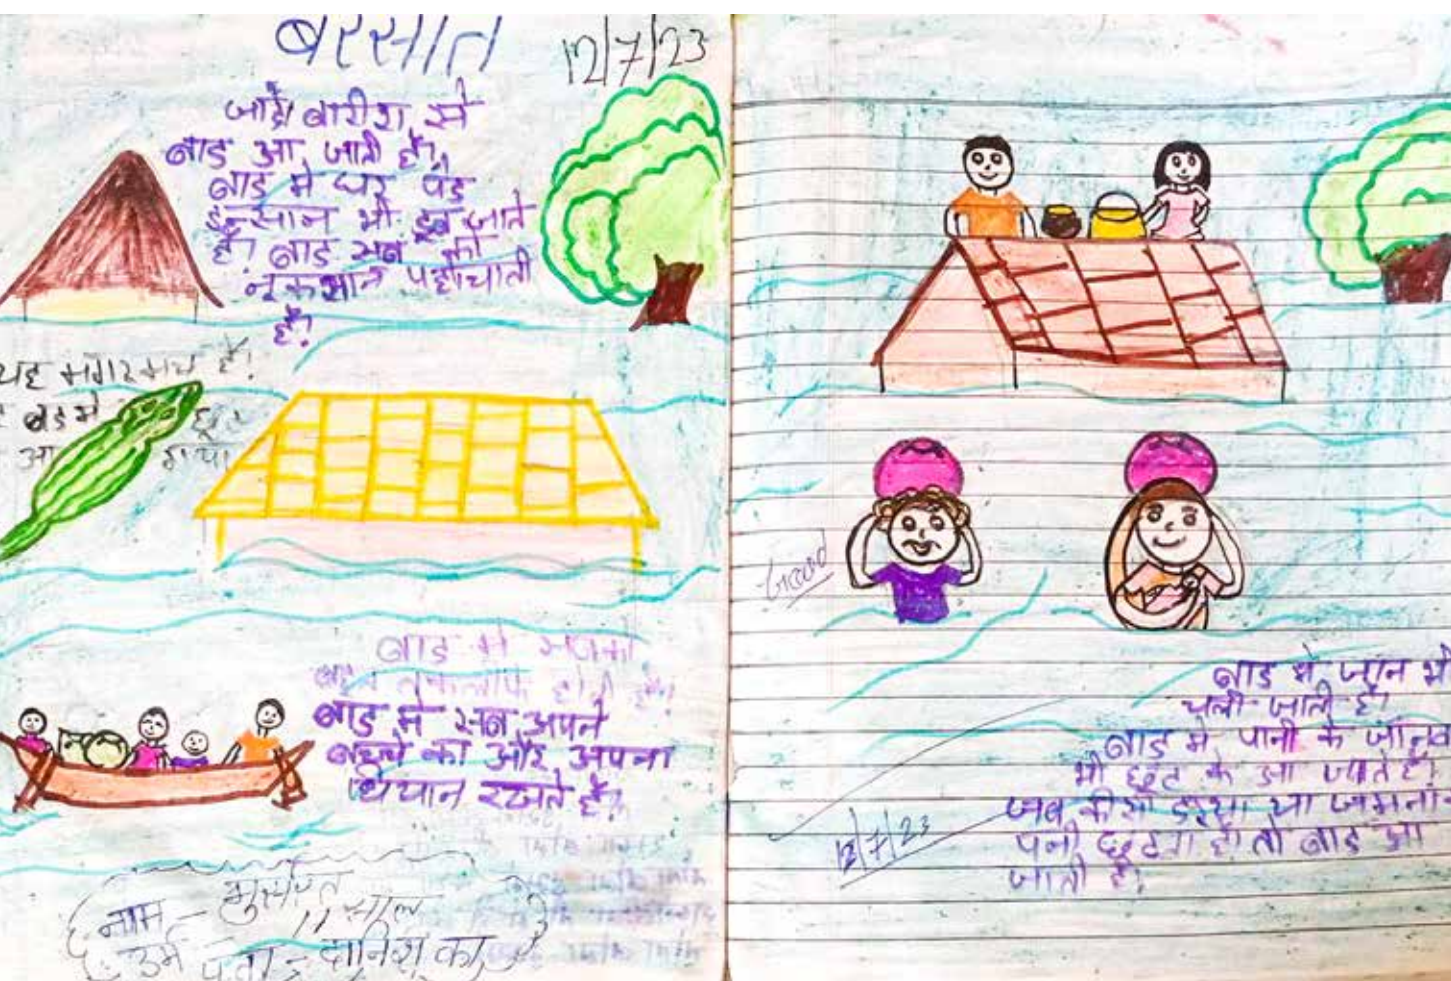 बरसात
12/7/23
जादा बारीश से
बाड आ जाती है?
बाड मे घर पेड
इन्सान भी डूब जाते
है? बाड सब को
नूकसान पहोचाती
है?
यह मगरमच है!
बाड मे छूट
आ गया
बाड मे सबको
बहुत तकलीफ होती है?
बाड मे सब अपने
बच्चे का और अपना
धियान रखते है?
नाम -
11 साल
उर्म
पता - दानिश का
Good
बाड मे जान भी
चली जाती है?
बाड मे पानी के जानव
भी छूट के आ जाते है?
जब कीसी दरया या जमना
पनी छूटता है तो बाड आ
जाती है?
12/7/23